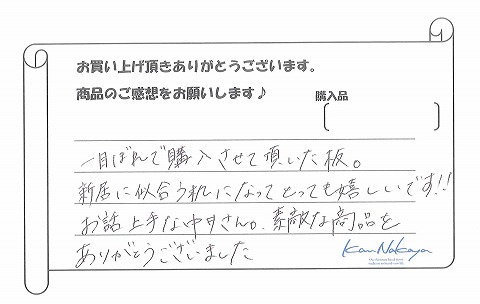 お買い上げ頂きありがとうございます。
商品のご感想をお願いします♪
購入品
一目ぼれで購入させて頂いた板。
新居に似合う机になってとっても嬉しいです!!
お話上手な中才さん。素敵な商品を
ありがとうございました
Kan Nakaya